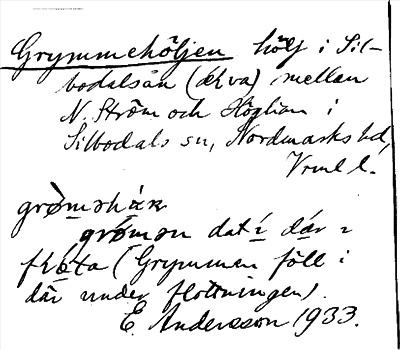 Grymmehöljen hölj i Sil-
bodalsån (älva) mellan
N. Ström och Höglian i
Silbodals sn, Nordmarks hd,
Vrml l.
grömshäk
grömən dat í dár ı
flöta (Grymmen föll i
där under flottningen).
E. Andersson 1933.